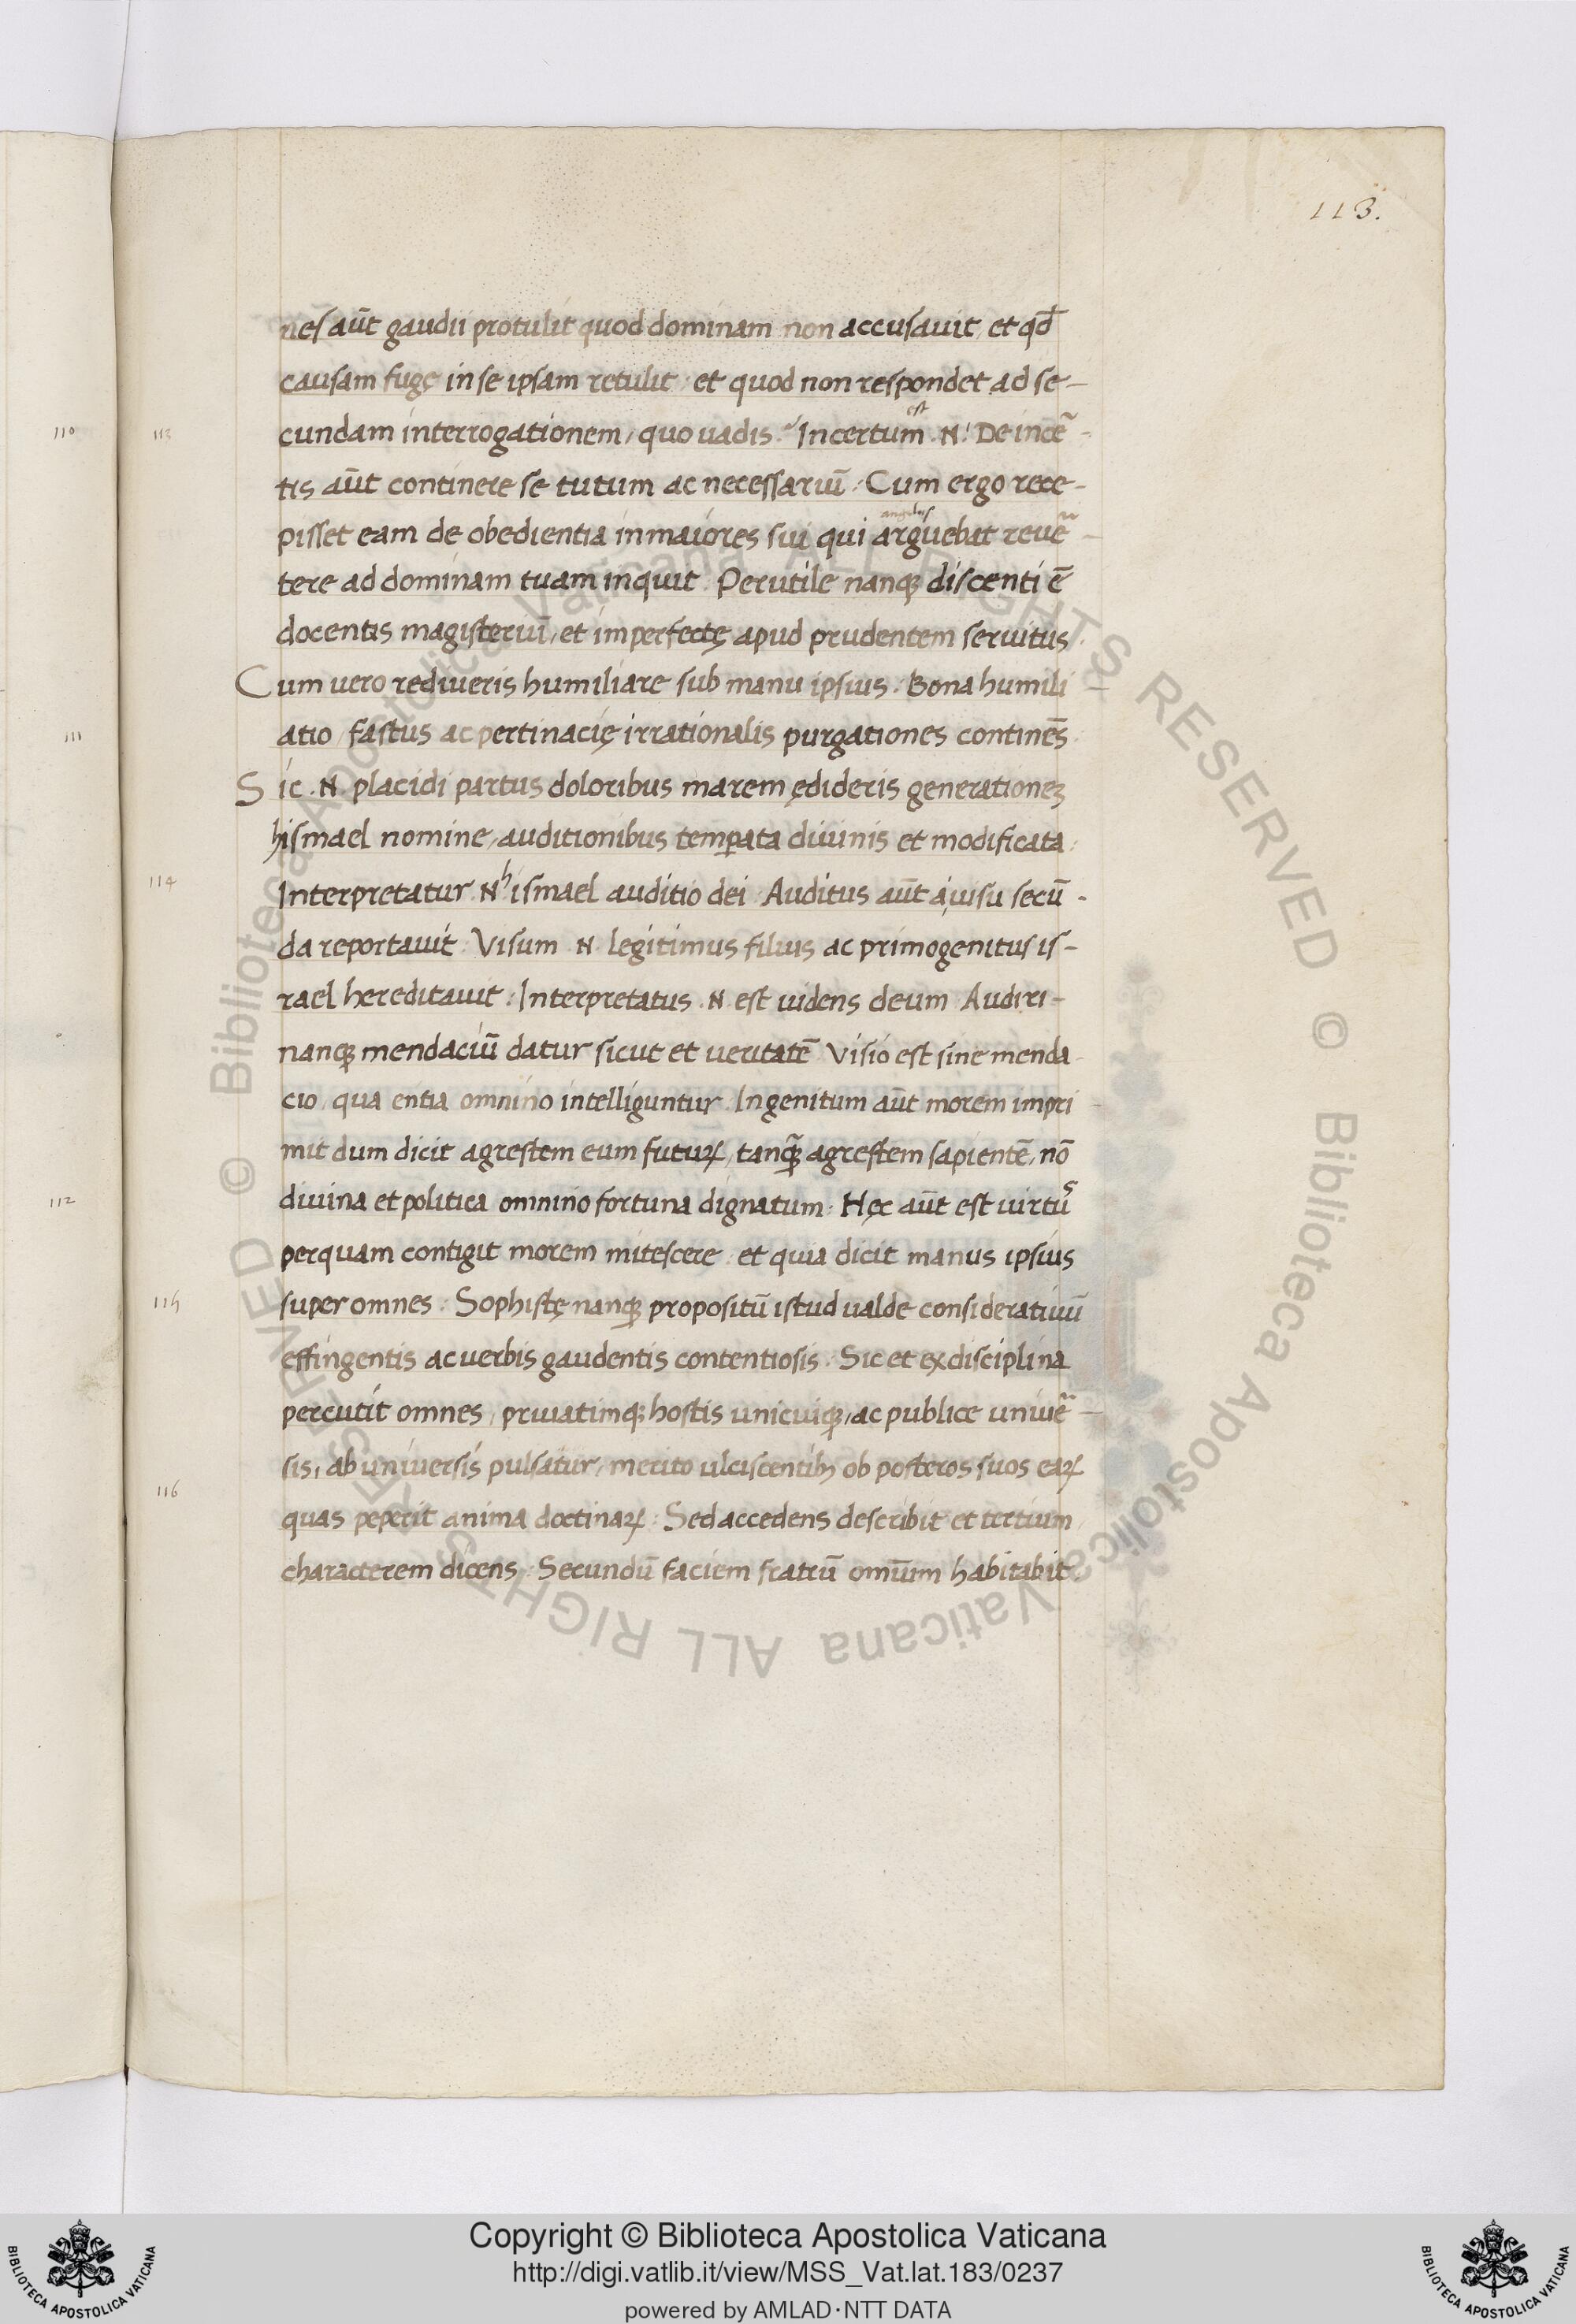 113.
nes aūt gaudii protulit quod dominam non accusauit, et qđ
causam fugę in se ipsam retulit: et quod non respondet ad se-
cundam interrogationem, quo uadis. Incertum est .N. De incer̃-
tis aūt continere se tutum ac necessariū: Cum ergo rece-
pisset eam de obedientia in maiores sui qui angelus arguebat reuẽ-
tere ad dominam tuam inquit. Perutile nanqꝫ discenti ē
docentis magisteriū, et imperfectę apud prudentem seruitus.
Cum uero rediueris humiliare sub manu ipsius. Bona humili-
atio, fastus ac pertinacię irrationalis purgationes continēs.
Sic .N. placidi partus doloribus marem ędideris generationeꝫ
hismael nomine, auditionibus temꝑata diuinis et modificata:
113
114
Interpretatur .N. hismael auditio dei. Auditus aūt a uisu secū-
da reportauit. Visum .N. legitimus filius ac primogenitus is-
rael hereditauit: Interpretatus .N. est uidens deum. Audiri-
nanqꝫ mendaciū datur sicut et ueritatē. Visio est sine menda-
cio, qua entia omnino intelliguntur. Ingenitum aūt morem impri-
mit dum dicit agrestem eum futuꝝ, tanꝗ̃ agrestem sapientē, nō
diuina et politica omnino fortuna dignatum: Hęc aūt est uirtus
perquam contigit morem mitescere: et quia dicit manus ipsius
115
super omnes: Sophistę nanqꝫ propositū istud ualde consideratiuū
effingentis ac uerbis gaudentis contentiosis. Sic et ex disciplina
percutit omnes, priuatimqꝫ hostis unicuiqꝫ, ac publice uniuẽ-
sis, ab uniuersis pulsatur, merito ulciscentibꝫ ob posteros suos eaꝝ
116
quas peperit anima doctinaꝝ: Sed accedens describit et tertium
characterem dicens: Secundū faciem fratrū omīum habitabit.
110
111
112
© Biblioteca Apostolica Vaticana ALL RIGHTS RESERVED © Biblioteca Apostolica Vaticana ALL RIGHTS RESERVED
Copyright © Biblioteca Apostolica Vaticana
http://digi.vatlib.it/view/MSS_Vat.lat.183/0237
powered by AMLAD·NTT DATA
BIBLIOTECA APOSTOLICA VATICANA
BIBLIOTECA APOSTOLICA VATICANA